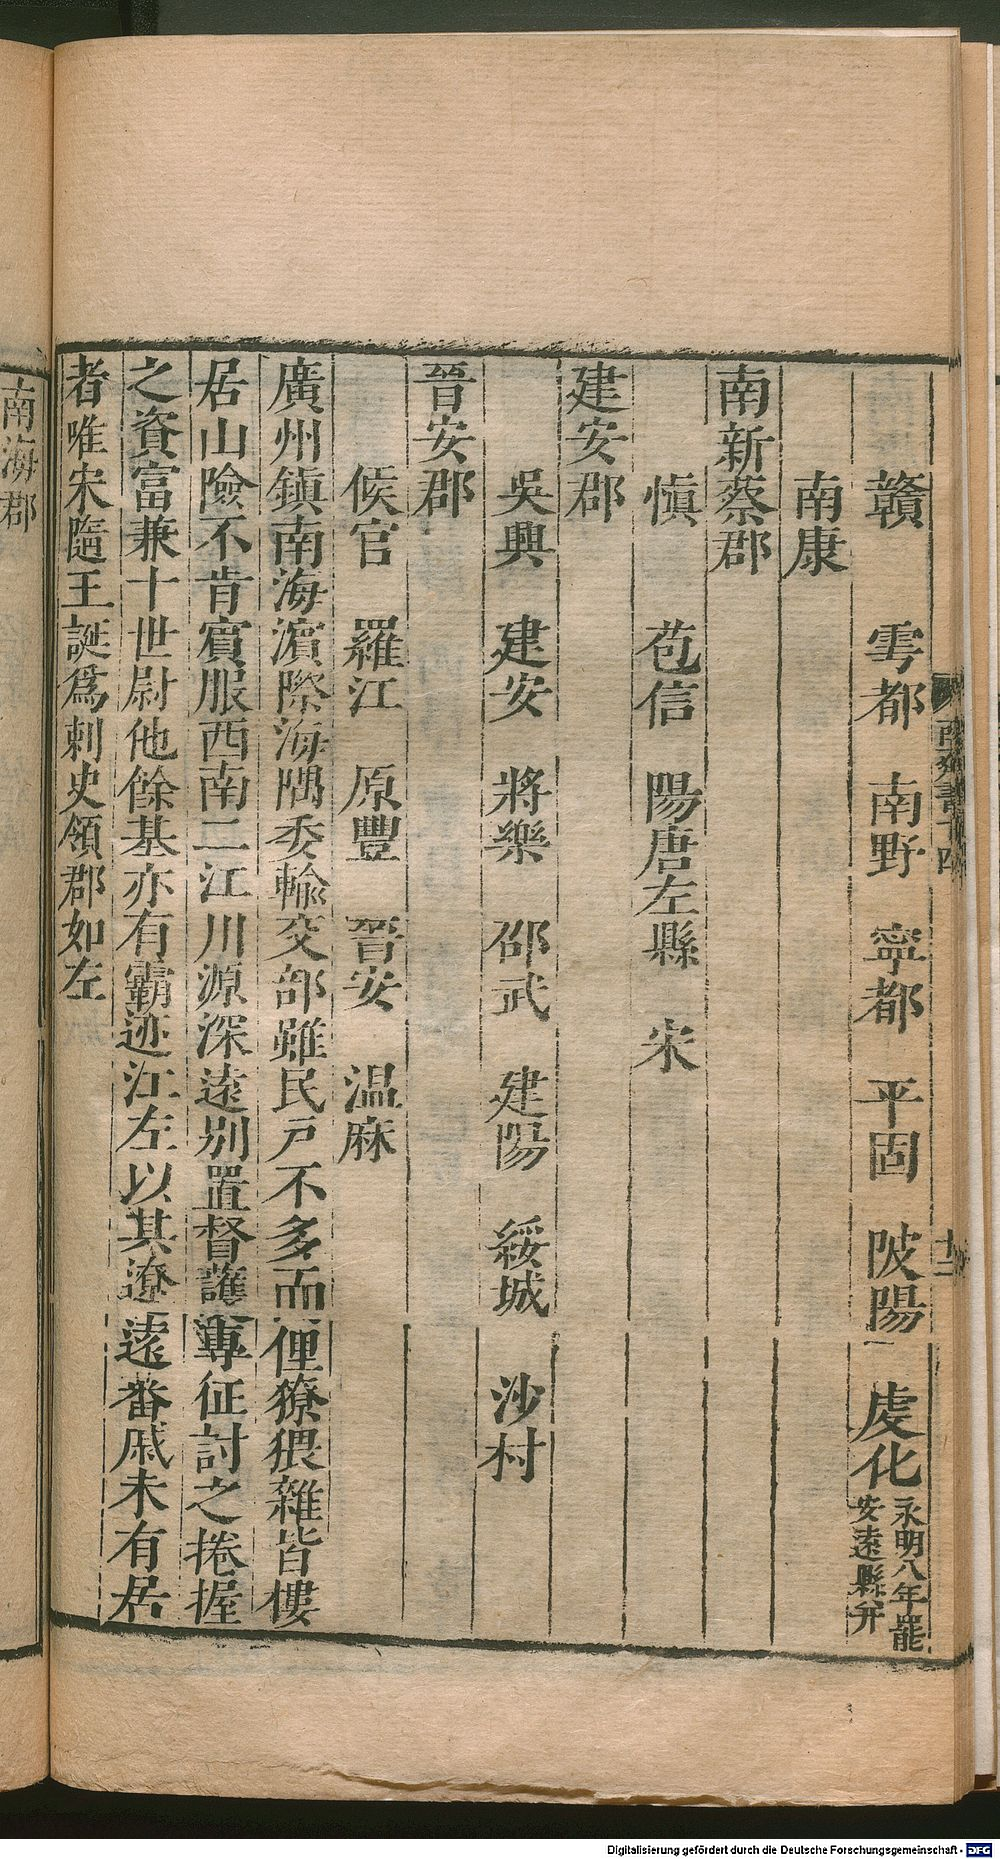 贛　雩都　南野　寧都　平固　陂陽　虔化永明八年罷安遠縣并
南康
南新蔡郡
慎　苞信　陽唐左縣　宋
建安郡
吳興　建安　將樂　邵武　建陽　綏城　沙村
晉安郡
候官　羅江　原豐　晉安　温麻
廣州鎮南海濵際海隅委輸交部雖民戸不多而俚獠猥雜皆樓
居山險不肯賓服西南二江川源深遠别置督護専征討之捲握
之資富兼十世尉他餘基亦有霸迹江左以其遼遠蕃戚未有居
者唯宋隨王誕爲刺史領郡如左
南海郡
南齊書十四
十二
Digitalisierung gefördert durch die Deutsche Forschungsgemeinschaft - DFG